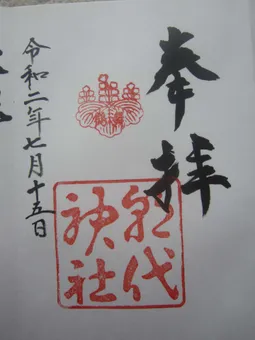 奉拝
代
神社
令和二年七月十五日